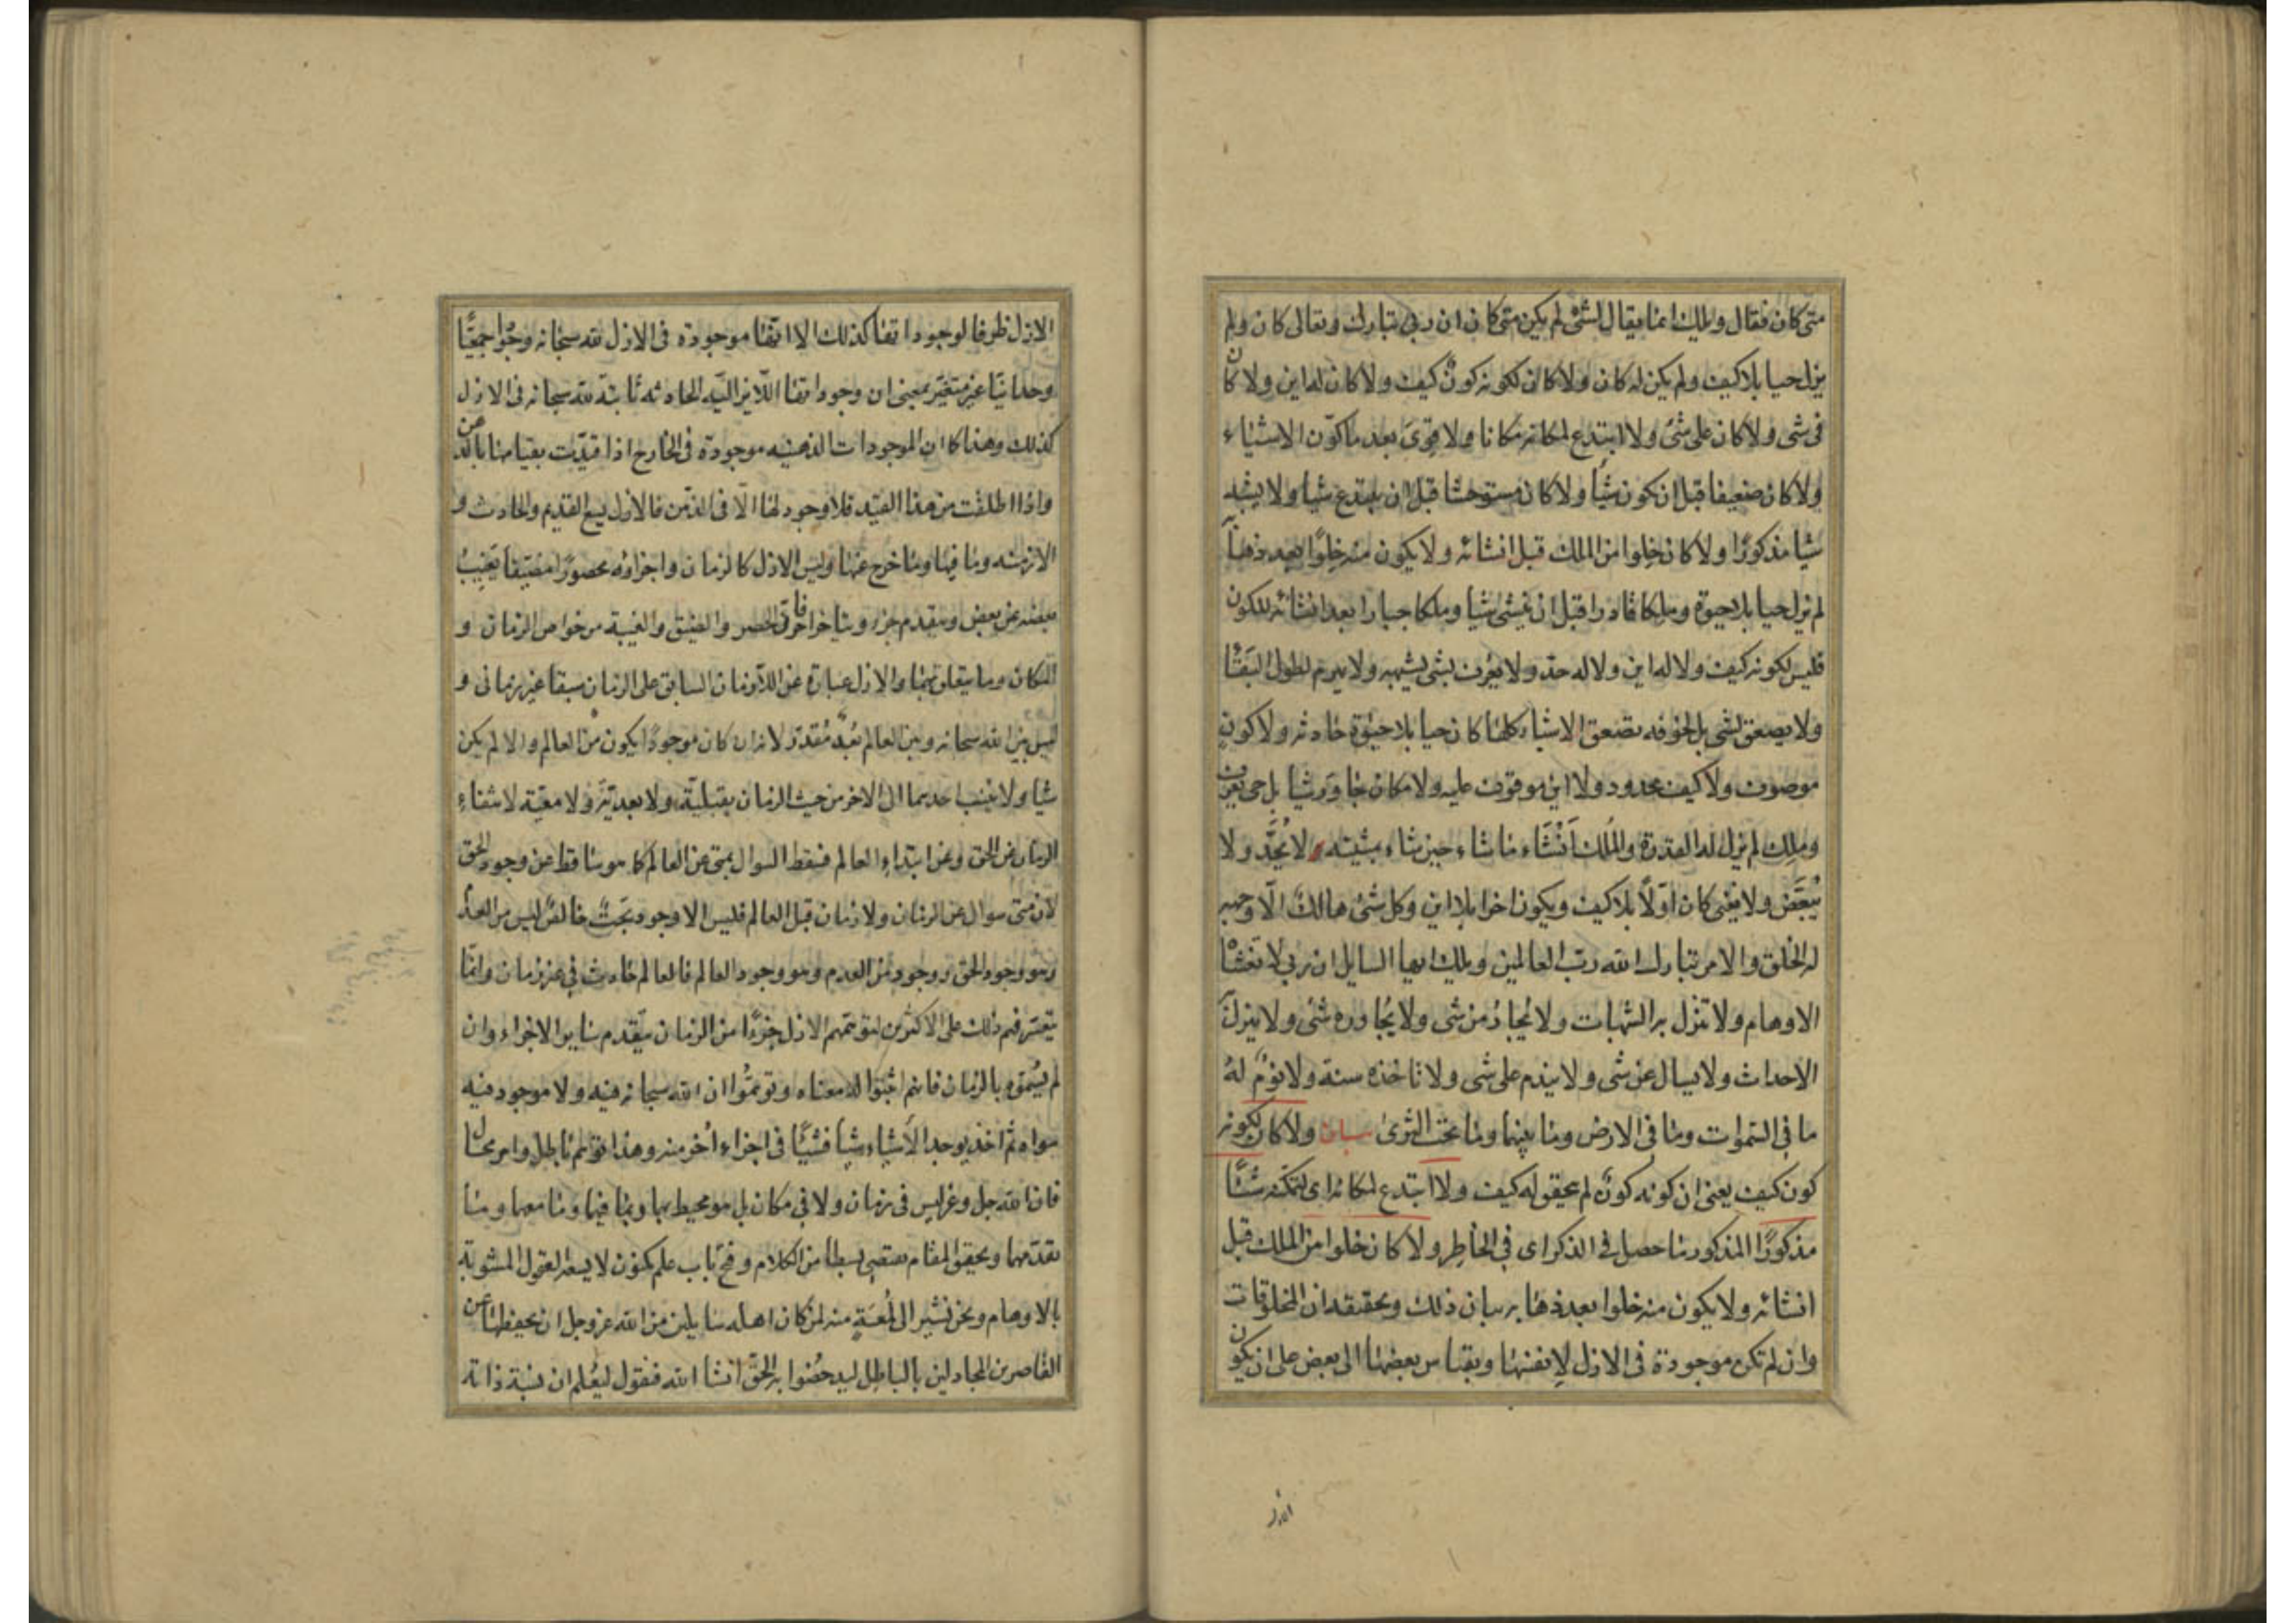 متى كان فقال ويلك انما يقال لشئ لم يكن متى كان ان ربي تبارك وتعالى كان ولم
يزل حيا بلا كيف ولم يكن له كان ولا كان لكونه كونٌ كيف ولا كان له اين ولا كان
في شى ولا كان على شئ ولا ابتدع لمكانه مكانا ولا قوى بعد ما كوّن الاشياء
ولا كان ضعيفا قبل ان يكون شيأ ولا كان مستوحشا قبل ان يبتدع شيأ ولا يشبه
شيأ مذكورًا ولا كان خِلوا من الملك قبل انشائه ولا يكون منه خِلوًا بعد ذهابه
لم يزل حيا بلا حيوة وملكا قادرا قبل ان ينشئ شيأ وملكا جبارا بعد انشائه للكون
فليس لكونه كيف ولا له اين ولا له حد ولا يعرف بشى يشبهه ولا يهرم لطول البَقَآ
ولا يصعق لشى بل لخوفه تصعق الاشياء كلها كان حيا بلا حيوة حادثه ولا كون
موصوف ولا كيف محدود ولا اين موقوف عليه ولا مكان جاور شيأ بل حى يعرف
وملك لم يزل له القدرة والمُلك اَنْشَاء ما شاء حين شاء بمشيته لا يُحَدّ ولا
يُبَعَّض ولا يفنى كان اوّلاً بلا كيف ويكون اخرا بلا اين وكل شئ هالك الّا وجهه
له الخلق والامر تبارك الله ربّ العالمين ويلك ايها السايل ان ربي لا تغشاه
الاوهام ولا تنزل به الشبهات ولا يُجارُ من شى ولا يُجاوره شئ ولا ينزل به
الاحداث ولا يسال عن شى ولا يندم على شى ولا تاخذه سنة ولا نومٌ لهُ
ما في السموات وما في الارض وما بينهما وما تحت الثرى بيان ولا كان لكونه
كون كيف يعنى ان كونه كونٌ لم يحقق له كيف ولا ابتدع لمكانه اى لتمكنه شيئًا
مذكورًا المذكور ما حصل في الذكر اى في الخاطِر ولا كان خلوا من الملك قبل
انشائه ولا يكون منه خلوا بعد ذهابه بيان ذلك وتحقيقه ان المخلوقات
وان لم تكن موجودة فى الازل لِانفسها وبقياس بعضها الى بعض على ان يكون
الازل
الازل ظرفا لوجوداتها كذلك الا انها موجودة فى الازل لله سبحانه وجودا جمعيًّا
وحدانيّا غير متغيّر بمعنى ان وجوداتها اللايزاليّه الحادثه ثابتة لله سبحانه فى الازل
كذلك وهذا كما ان الموجودات الذهنيه موجودة فى الخارج اذا قيدّت بقيامها بالذهن
واذا اطلقت من هذا القيد فلا وجود لها الّا فى الذهن فالازل يسع القديم والحادث و
الازمنه وما فيها وما خرج عنها وليس الازل كالزمان واجزاؤه محصورًا مضيقا يغيب
بعضه عن بعض ويتقدم جزء ويتاخر اخر فان الحصر والضيق والغيبة من خواص الزمان و
المكان وما يتعلق بهما والازل عبارة عن اللازمان السابق على الزمان سبقا غير زمانى و
ليس بين الله سبحانه وبين العالم بُعدٌ مُقدّر لانه ان كان موجودًا يكون من العالم والا لم يكن
شيأ ولا ينسب احدهما الى الاخر من حيث الزمان بقبليّة ولا بعديّة ولا معيّة لانتفاء
الزمان عن الحق وعن ابتداء العالم فسقط السوال بمتى عن العالم كما هو ساقط عن وجود الحق
لان متى سوال عن الزمان ولا زمان قبل العالم فليس الا وجود بَحتٌ خالصٌ ليس من العدم
وهو وجود الحق ووجود من العدم وهو وجود العالم فالعالم حادث في غير زمان وانّما
يتعسّر فهم ذلك على الاكثرين لتوهّمهم الازل جزءًا من الزمان يتقدم سايرا الاجزاء وان
لم يسُمّوه بالزمان فانهم اثبتوا له معناه وتوهّمُوا ان الله سبحانه فيه ولا موجود فيه
سواه ثم اخذ يوجد الأشياء شيأ فشيئًا فى اجزاء اُخر منه وهذا توهّم باطل وامر محال
فان الله جل وعز ليس فى زمان ولا في مكان بل هو محيط بهما وبما فيهما وما معهما وما
تقدّمهما وتحقيق المقام يقتضى بسطا من الكلام وفتح باب علم مكنون لا يسعه العقول المشوبة
بالاوهام ونحن نشير الى لُمعَةٍ منه لمن كان اهله سايلين من الله عز وجل ان يحفظها عن
القاصرين المجادلين بالباطل ليدحضُوا به الحقّ انشا الله فنقول ليُعلم ان نسبة ذاته